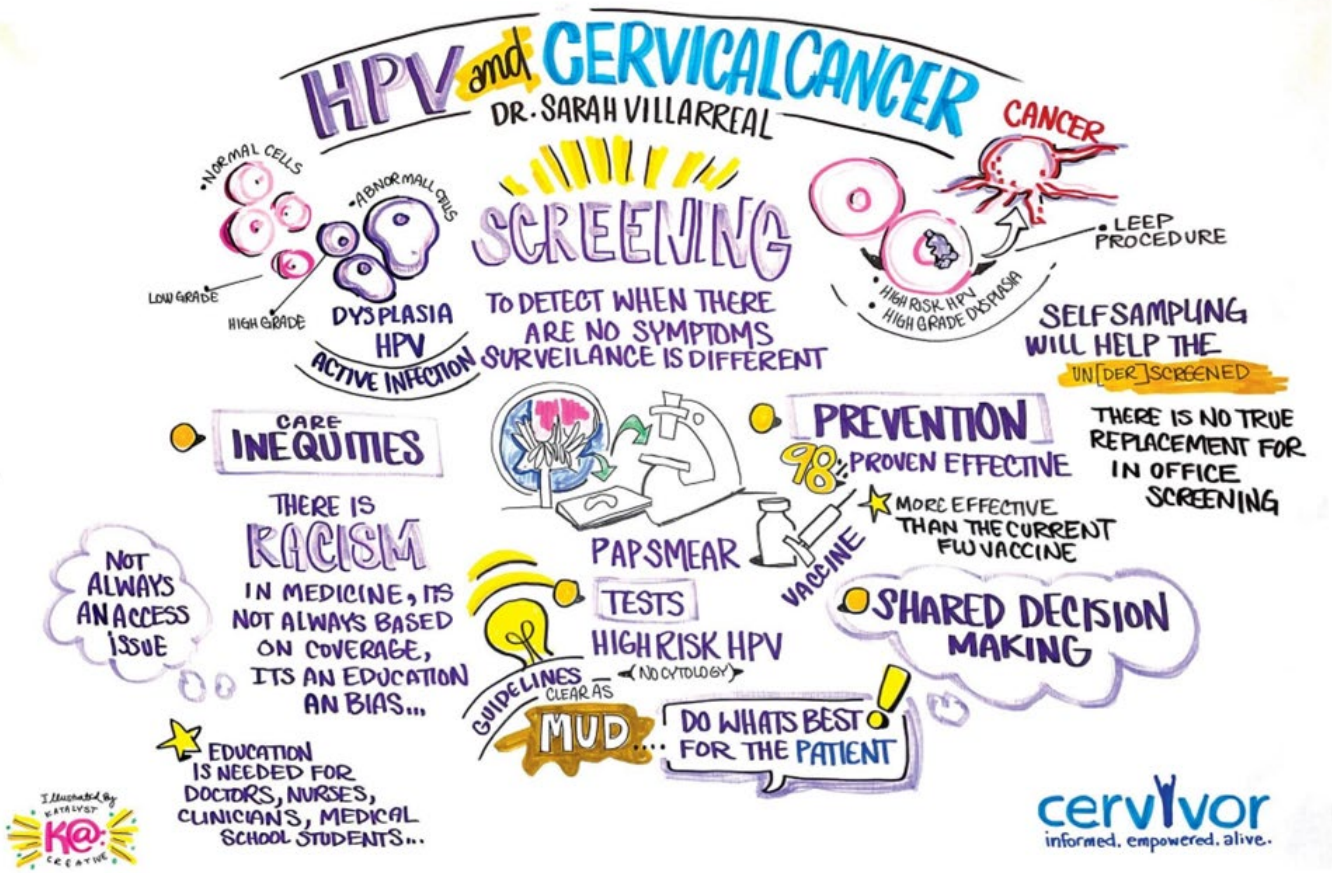 HPV and CERVICAL CANCER
DR. SARAH VILLARREAL
• NORMAL CELLS
• ABNORMALL CELLS
LOW GRADE
HIGH GRADE
DYSPLASIA
HPV
ACTIVE INFECTION
SCREENING
TO DETECT WHEN THERE
ARE NO SYMPTOMS
SURVEILANCE IS DIFFERENT
CANCER
• LEEP
PROCEDURE
• HIGH RISK HPV
• HIGH GRADE DYSPLASIA
SELF SAMPLING
WILL HELP THE
UN[DER]SCREENED
THERE IS NO TRUE
REPLACEMENT FOR
IN OFFICE
SCREENING
CARE
INEQUITIES
THERE IS
RACISM
IN MEDICINE, ITS
NOT ALWAYS BASED
ON COVERAGE,
ITS AN EDUCATION
AN BIAS...
NOT
ALWAYS
AN ACCESS
ISSUE
EDUCATION
IS NEEDED FOR
DOCTORS, NURSES,
CLINICIANS, MEDICAL
SCHOOL STUDENTS...
PAPSMEAR
TESTS
HIGH RISK HPV
(NO CYTOLOGY)
GUIDELINES
CLEAR AS
MUD....
DO WHATS BEST
FOR THE PATIENT
PREVENTION
98% PROVEN EFFECTIVE
MORE EFFECTIVE
THAN THE CURRENT
FLU VACCINE
VACCINE
SHARED DECISION
MAKING
Illustrated By
KATALYST
K@:
CREATIVE
cervivor
informed. empowered. alive.